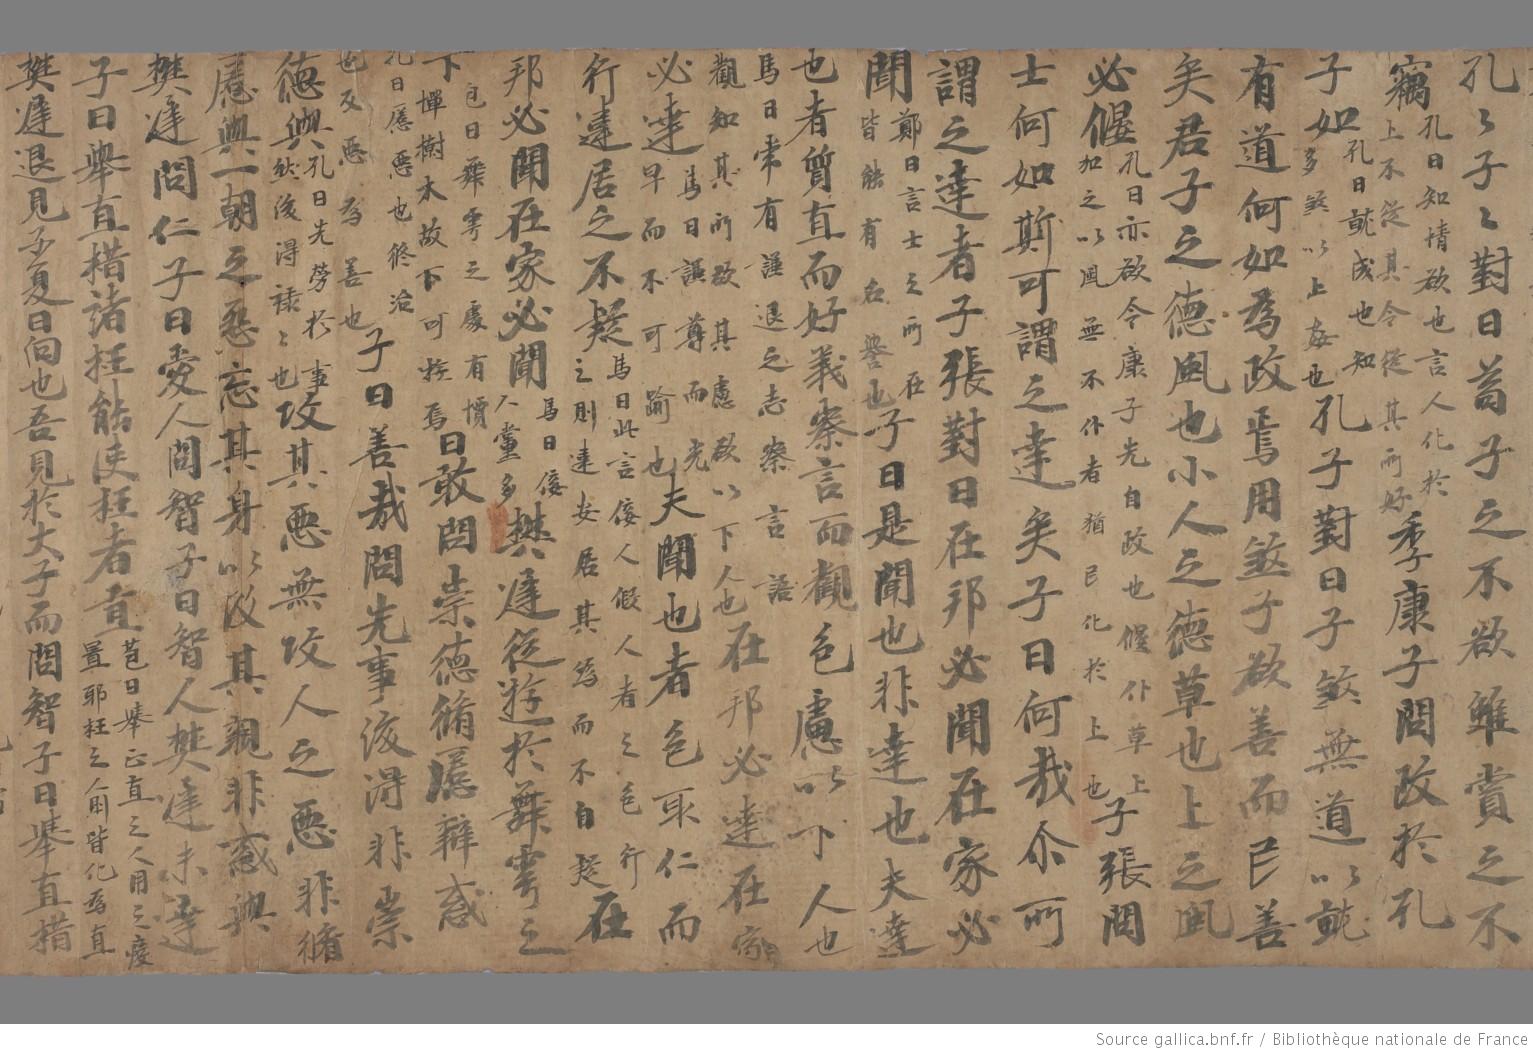 孔〻子〻對曰苟子之不欲雖賞之不
竊孔曰知情欲也言人化於上不從其令從其所好季康子問政於孔
子如孔曰就成也知多煞以上姦也孔子對曰子煞無道以就
有道何如為政焉用煞子欲善而已善
矣君子之德風也小人之德草也上之風
必偃孔曰亦欲令康子先自政也偃仆草上加之以風無不仆者猶民化於上也子張問
士何如斯可謂之達矣子曰何哉尒所
謂之達者子張對曰在邦必聞在家必
聞鄭曰言士之所在皆能有名譽也子曰是聞也非達也夫達
也者質直而好義察言而觀色慮以下人也
馬曰常有謹退之志察言語觀知其所欲其慮欲以下人也在邦必達在家
必達馬曰謹尊而光早而不可踰也夫聞也者色取仁而
行違居之不疑馬曰此言佞人假人者之色行之則違安居其為而不自疑在
邦必聞在家必聞馬曰佞人黨多樊遲從遊於舞雩之
下包曰舞雩之處有壇墠樹木故下可遊焉曰敢問崇德脩慝辯惑
孔曰慝惡也脩治也及惡為善也子曰善哉問先事後得非崇
德與孔曰先勞於事然後得祿〻也攻其惡無攻人之惡非脩
慝與一朝之惡忘其身以及其親非惑與
樊遲問仁子曰愛人問智子曰智人樊遲未達
子曰舉直措諸枉能使枉者直苞曰舉正直之人用之癈置耶枉之人則皆化為直
樊遲退見子夏曰向也吾見於夫子而問智子曰舉直措
Source gallica.bnf.fr / Bibliothèque nationale de France